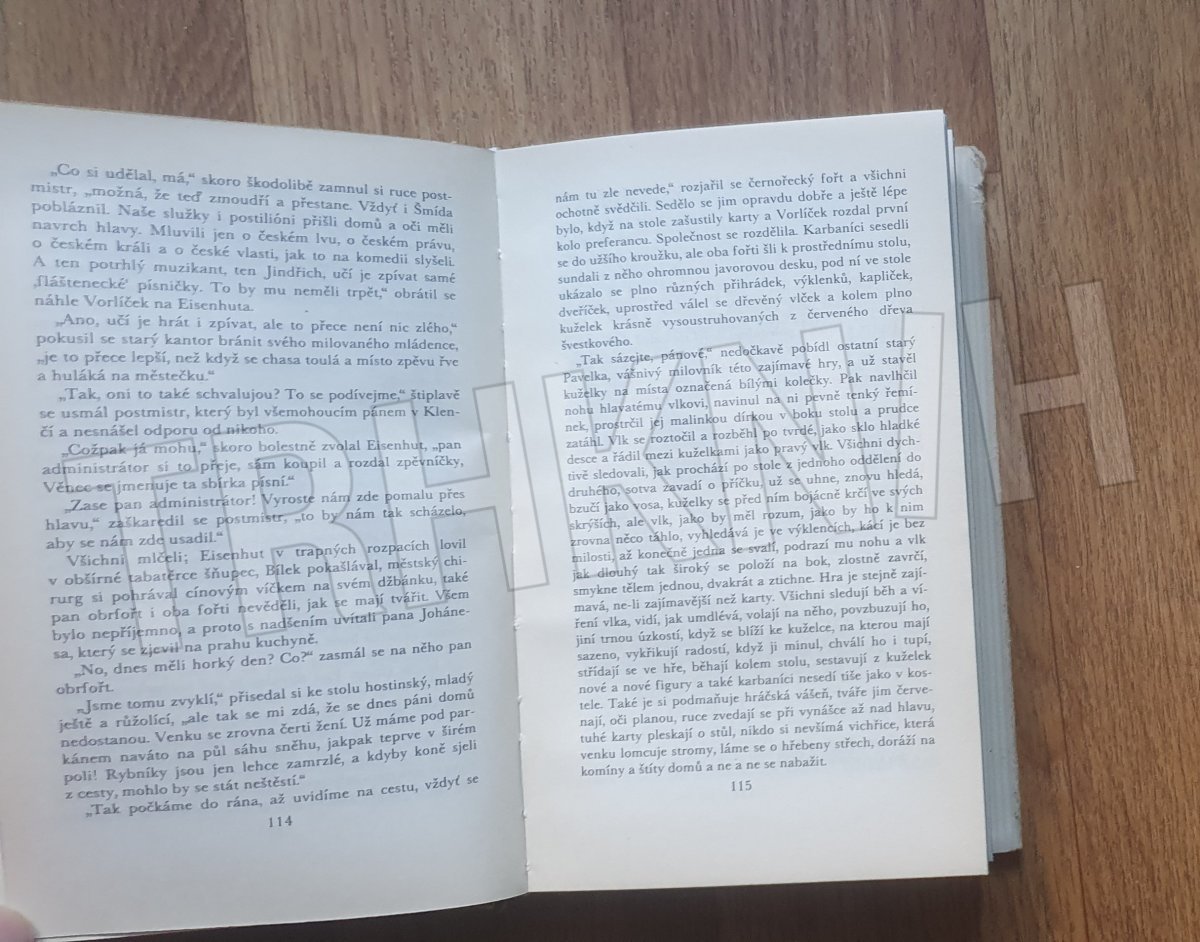 „Co si udělal, má,“ skoro škodolibě zamnul si ruce post-
mistr, „možná, že teď zmoudří a přestane. Vždyť i Šmída
pobláznil. Naše služky i postilióni přišli domů a oči měli
navrch hlavy. Mluvili jen o českém lvu, o českém právu,
o českém králi a o české vlasti, jak to na komedii slyšeli.
A ten potrhlý muzikant, ten Jindřich, učí je zpívat samé
‚fláštenecké‘ písničky. To by mu neměli trpět,“ obrátil se
náhle Vorlíček na Eisenhuta.
„Ano, učí je hrát i zpívat, ale to přece není nic zlého,“
pokusil se starý kantor bránit svého milovaného mládence,
„je to přece lepší, než když se chasa toulá a místo zpěvu řve
a huláká na městečku.“
„Tak, oni to také schvalujou? To se podívejme,“ štiplavě
se usmál postmistr, který byl všemohoucím pánem v Klen-
čí a nesnášel odporu od nikoho.
„Cožpak já mohu,“ skoro bolestně zvolal Eisenhut, „pan
administrátor si to přeje, sám koupil a rozdal zpěvníčky,
Věnec se jmenuje ta sbírka písní.“
„Zase pan administrátor! Vyroste nám zde pomalu přes
hlavu,“ zaškaredil se postmistr, „to by nám tak scházelo,
aby se nám zde usadil.“
Všichni mlčeli; Eisenhut v trapných rozpacích lovil
v obšírné tabatěrce šňupec, Bílek pokašlával, městský chi-
rurg si pohrával cínovým víčkem na svém džbánku, také
pan obrfořt i oba fořti nevěděli, jak se mají tvářit. Všem
bylo nepříjemno, a proto s nadšením uvítali pana Joháne-
sa, který se zjevil na prahu kuchyně.
„No, dnes měli horký den? Co?“ zasmál se na něho pan
obrfořt.
„Jsme tomu zvyklí,“ přisedal si ke stolu hostinský, mladý
ještě a růžolící, „ale tak se mi zdá, že se dnes páni domů
nedostanou. Venku se zrovna čerti žení. Už máme pod par-
kánem naváto na půl sáhu sněhu, jakpak teprve v širém
poli! Rybníky jsou jen lehce zamrzlé, a kdyby koně sjeli
z cesty, mohlo by se stát neštěstí.“
„Tak počkáme do rána, až uvidíme na cestu, vždyť se
114
nám tu zle nevede,“ rozjařil se černořecký fořt a všichni
ochotně svědčili. Sedělo se jim opravdu dobře a ještě lépe
bylo, když na stole zašustily karty a Vorlíček rozdal první
kolo preferancu. Společnost se rozdělila. Karbaníci sesedli
se do užšího kroužku, ale oba fořti šli k prostřednímu stolu,
sundali z něho ohromnou javorovou desku, pod ní ve stole
ukázalo se plno různých přihrádek, výklenků, kapliček,
dveříček, uprostřed válel se dřevěný vlček a kolem plno
kuželek krásně vysoustruhovaných z červeného dřeva
švestkového.
„Tak sázejte, pánové,“ nedočkavě pobídl ostatní starý
Pavelka, vášnivý milovník této zajímavé hry, a už stavěl
kuželky na místa označená bílými kolečky. Pak navlhčil
nohu hlavatému vlkovi, navinul na ni pevně tenký řemí-
nek, prostrčil jej malinkou dírkou v boku stolu a prudce
zatáhl. Vlk se roztočil a rozběhl po tvrdé, jako sklo hladké
desce a řádil mezi kuželkami jako pravý vlk. Všichni dych-
tivě sledovali, jak prochází po stole z jednoho oddělení do
druhého, sotva zavadí o příčku, už se uhne, znovu hledá,
bzučí jako vosa, kuželky se před ním bojácně krčí ve svých
skrýších, ale vlk, jako by měl rozum, jako by ho k nim
zrovna něco táhlo, vyhledává je ve výklencích, kácí je bez
milosti, až konečně jedna se svalí, podrazí mu nohu a vlk
jak dlouhý tak široký se položí na bok, zlostně zavrčí,
smykne tělem jednou, dvakrát a ztichne. Hra je stejně zají-
mavá, ne-li zajímavější než karty. Všichni sledují běh a ví-
ření vlka, vidí, jak umdlévá, volají na něho, povzbuzují ho,
jiní trnou úzkostí, když se blíží ke kuželce, na kterou mají
sazeno, vykřikují radostí, když ji minul, chválí ho i tupí,
střídají se ve hře, běhají kolem stolu, sestavují z kuželek
nové a nové figury a také karbaníci nesedí tiše jako v kos-
tele. Také je si podmaňuje hráčská vášeň, tváře jim červe-
nají, oči planou, ruce zvedají se při vynášce až nad hlavu,
tuhé karty pleskají o stůl, nikdo si nevšímá vichřice, která
venku lomcuje stromy, láme se o hřebeny střech, doráží na
komíny a štíty domů a ne a ne se nabažit.
115
TRHKNIH